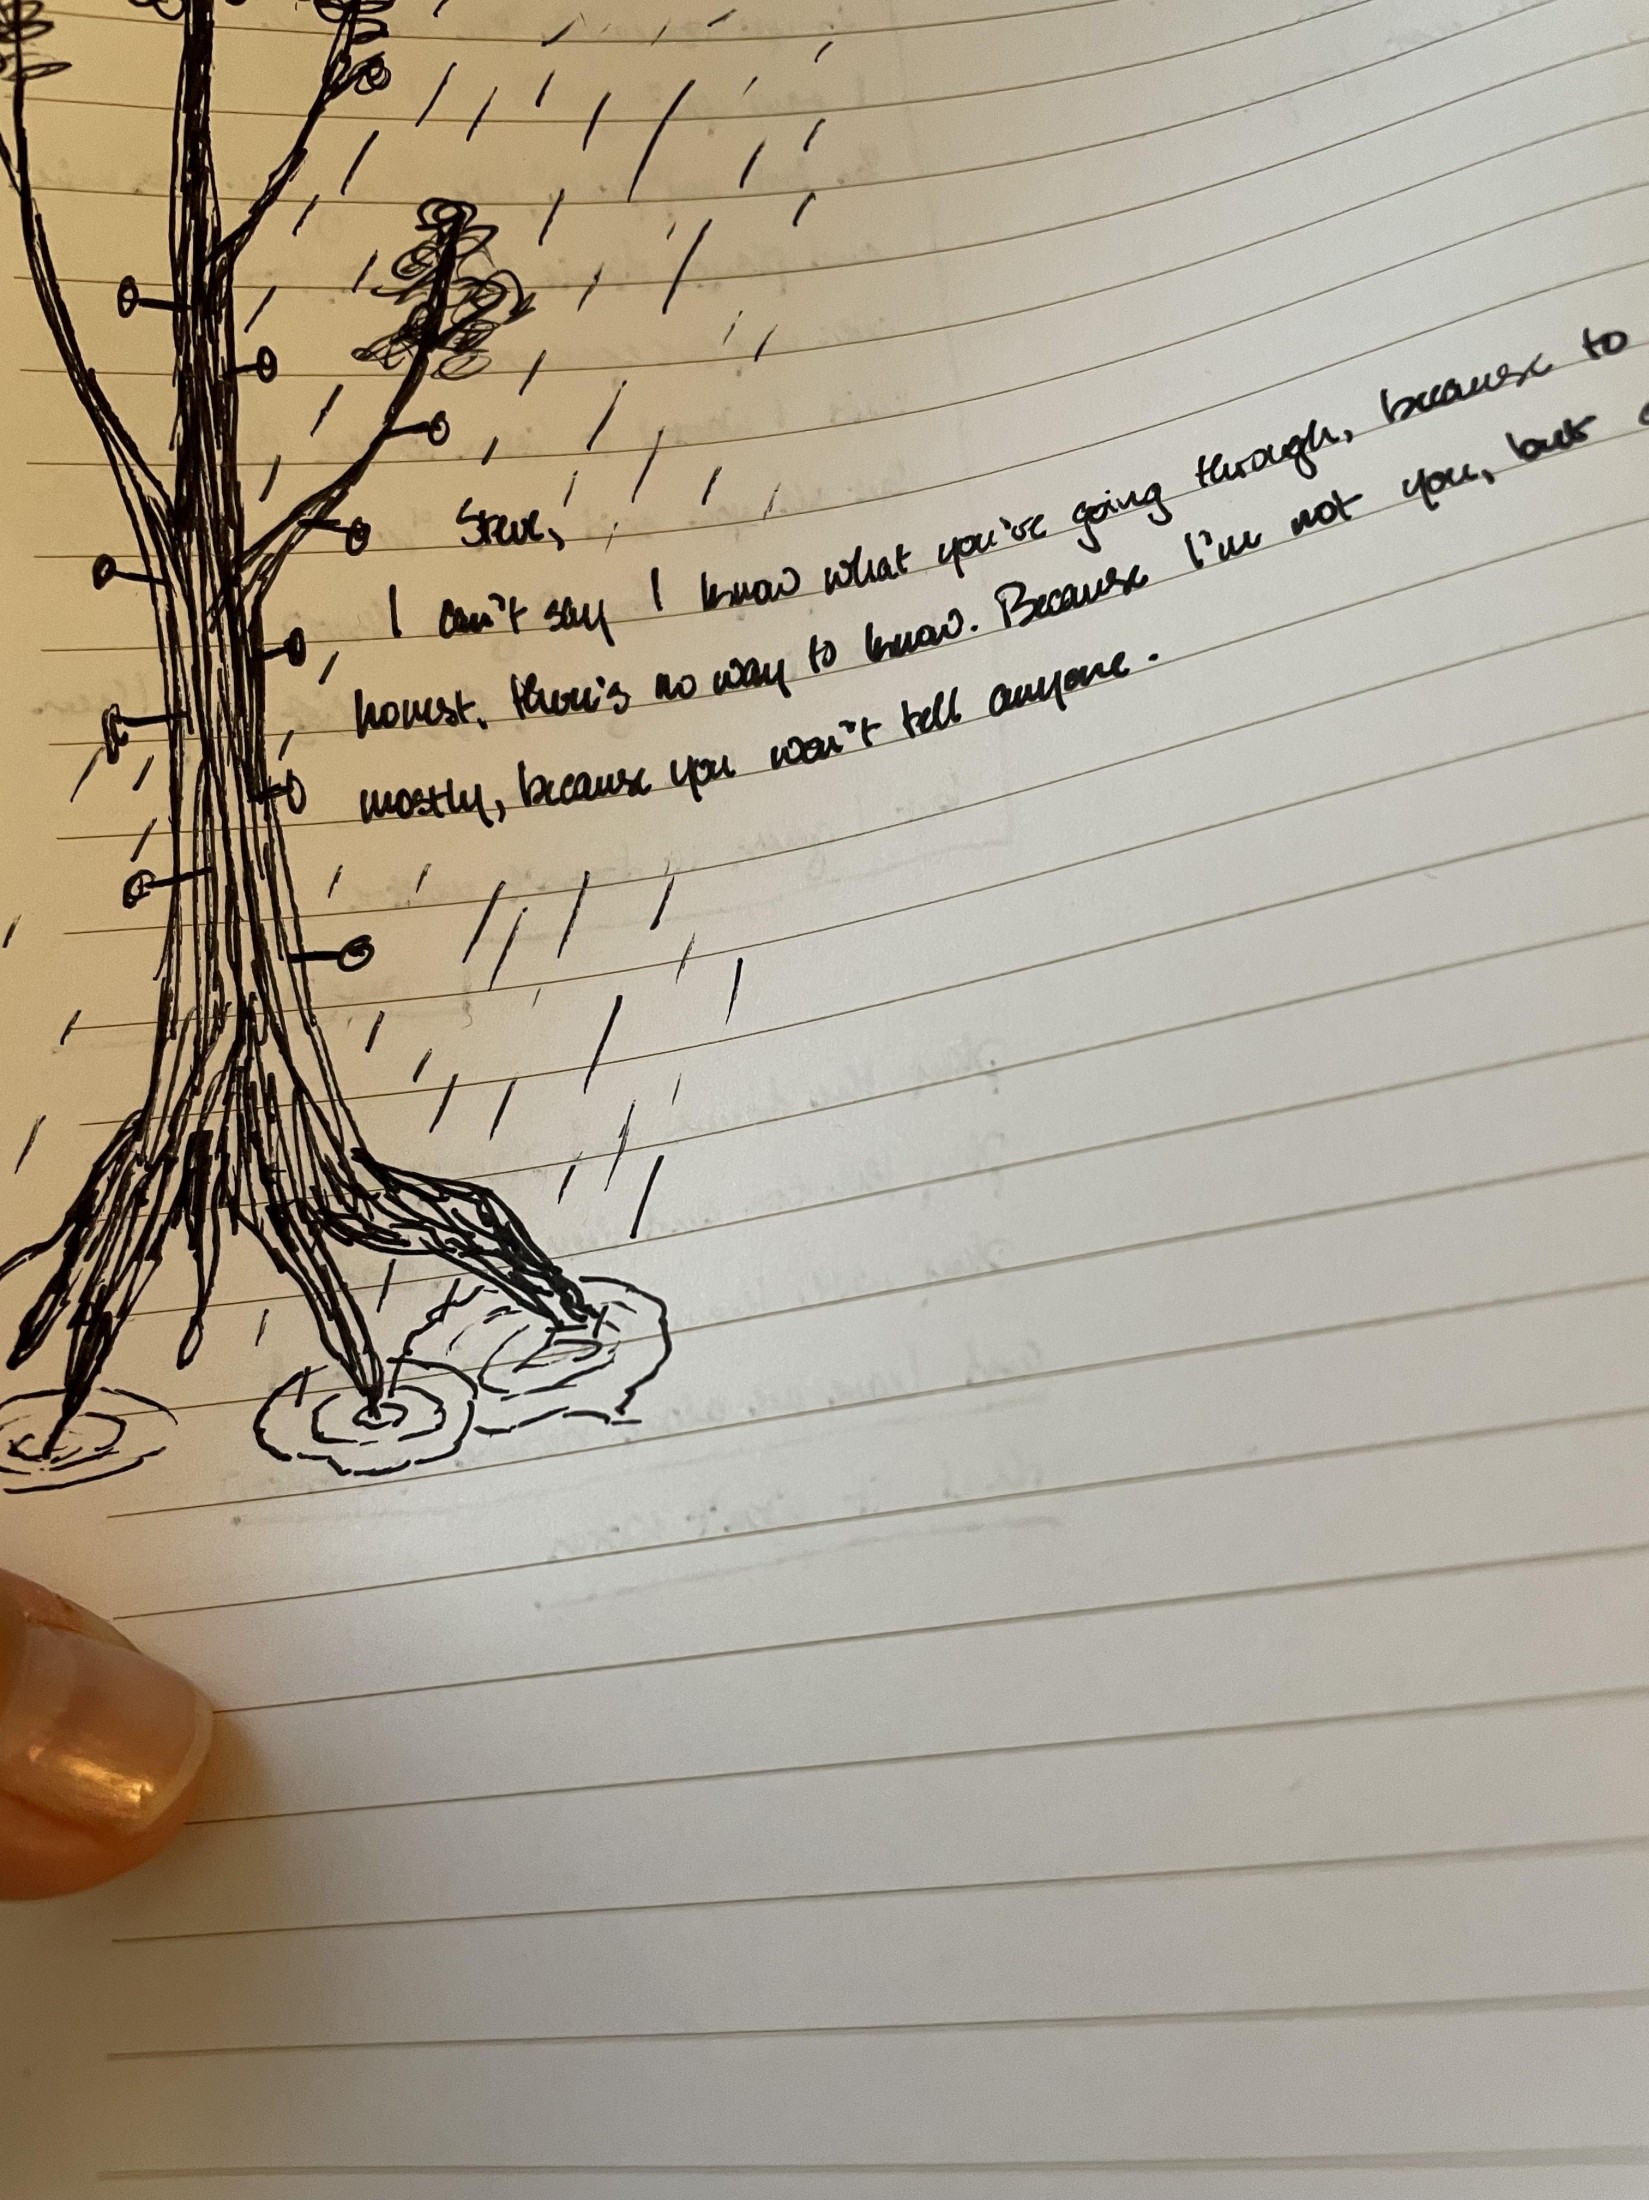 Steve,
I can't say I know what you're going through, because to
honest, there's no way to know. Because I'm not you, but
mostly, because you won't tell anyone.